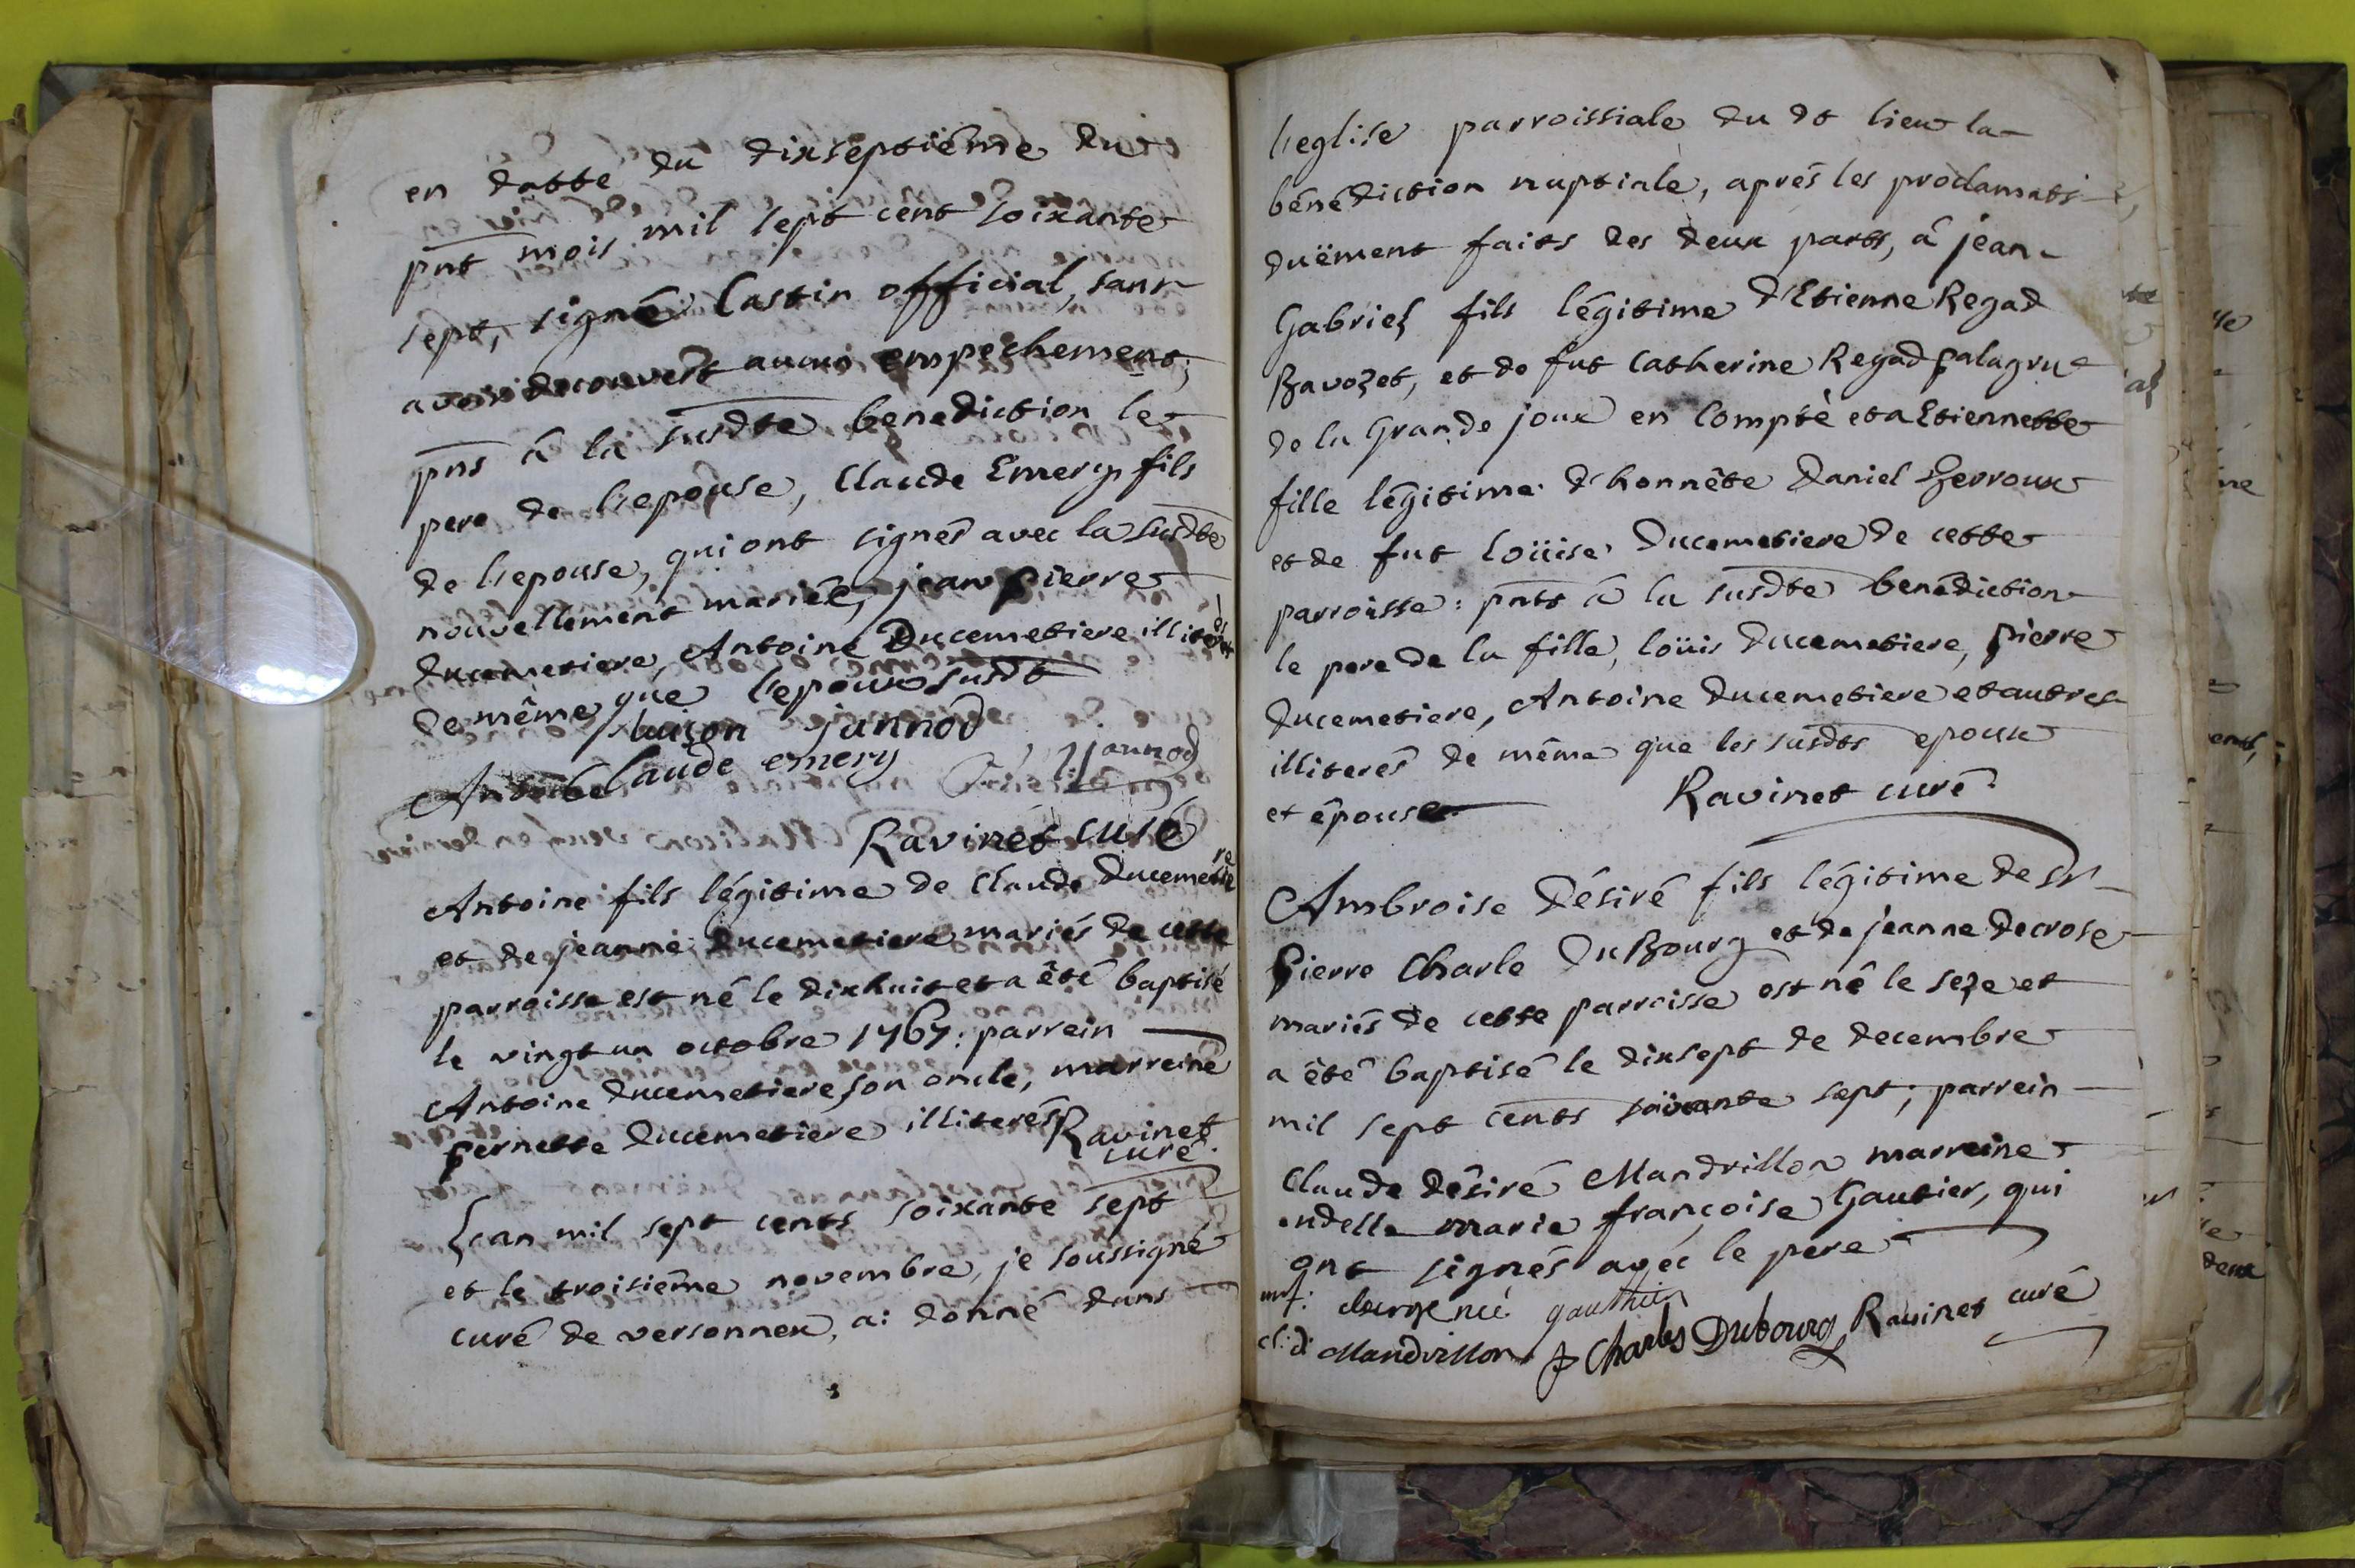 en datte du dixseptiême du
pnt mois mil sept cent soixante
sept, signé Castin official, sans
avoir decouvert aucun empechement;
pns â la susdte benediction le
pere de l'epouse, Claude Emery fils
de l'epouse, qui ont signés avec la susdte
nouvellement mariée, jean pierre
ducemetiere, Antoine Ducemetiere illiterés
de même que l'epoux susdt
luison jannod
Claude emery jjannod
Ravinet curé
Antoine fils légitime de Claude Ducemetiere
et de jeanne ducemetiere mariés de cette
parroisse est né le dixhuit et a été baptisé
le vingt un octobre 1767: parrein
Antoine ducemetiere son oncle, marreine
pernette ducemetiere illiterés Ravinet
curé.
L'an mil sept cents soixante sept
et le troisiême novembre, je soussigné
curé de versonnex, ai donné dans
l'eglise parroissiale du dt lieu la
bénédiction nuptiale, aprés les proclamati
duëment faits des deux parts, â jean
Gabriel fils légitime d'Etienne Regad
Bavozet, et de fut Catherine Regad palagru
de la Grande joux en Compté et a Etiennette
fille légitime d'honnête Daniel Gerroux
et de fut Loüise Ducemetiere de cette
parroisse: pnts â la susdte benédiction
le pere de la fille, loüis Ducemetiere, pierre
ducemetiere, Antoine ducemetiere et autres
illiterés de même que les susdts epoux
et êpouse Ravinet curé.
Ambroise Désiré fils légitime de Sr
Pierre Charle DuBourg et de jeanne decrose
mariés de cette parroisse est né le seze et
a été baptisé le dixsept de decembre
mil sept cents soixante sept; parrein
Claude Désiré Mandrillon marreine
Marie françoise Gautier, qui
ont signés avec le pere
mf: gauthier
cl: d: Mandrillon p Charles Dubourg Ravinet curé